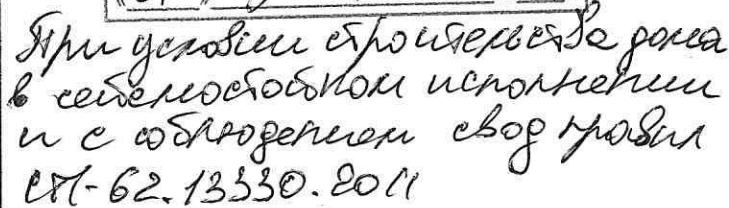 При условии строительства дома
в сейсмостойком исполнении
и с соблюдением свод правил
СП-62.13330.2011